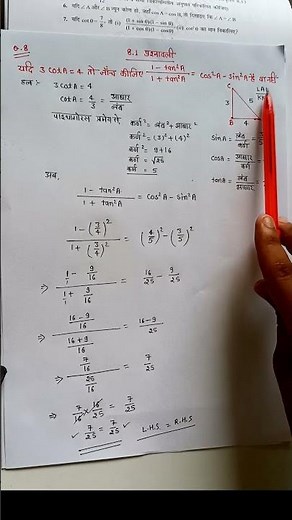 7. यदि cot θ = 7/8, तो (i) (1 + sin θ)(1 - sin θ) / (1 + cos θ)(1 - cos θ)
प्र.8
8.1 प्रश्नावली
यदि 3 cot A = 4 तो जाँच कीजिए (1 - tan²A)/(1 + tan²A) = cos²A - sin²A है या नहीं
हल:- 3 cot A = 4
cot A = 4/3 = आधार/लंब
पाइथागोरस प्रमेय से
कर्ण² = लंब² + आधार²
कर्ण² = (3)² + (4)²
कर्ण² = 9 + 16
कर्ण = √25
कर्ण = 5
3 5
B 4
sin A = लंब/कर्ण =
cos A = आधार/कर्ण =
tan A = लंब/आधार =
अब,
(1 - tan²A)/(1 + tan²A) = cos²A - sin²A
(1 - (3/4)²)/(1 + (3/4)²) = (4/5)² - (3/5)²
⇒ (1/1 - 9/16)/(1/1 + 9/16) = 16/25 - 9/25
⇒ ((16 - 9)/16)/((16 + 9)/16) = (16 - 9)/25
⇒ (7/16)/(25/16) = 7/25
⇒ 7/16 × 16/25 = 7/25
✓ 7/25 = 7/25 ✓
L.H.S = R.H.S